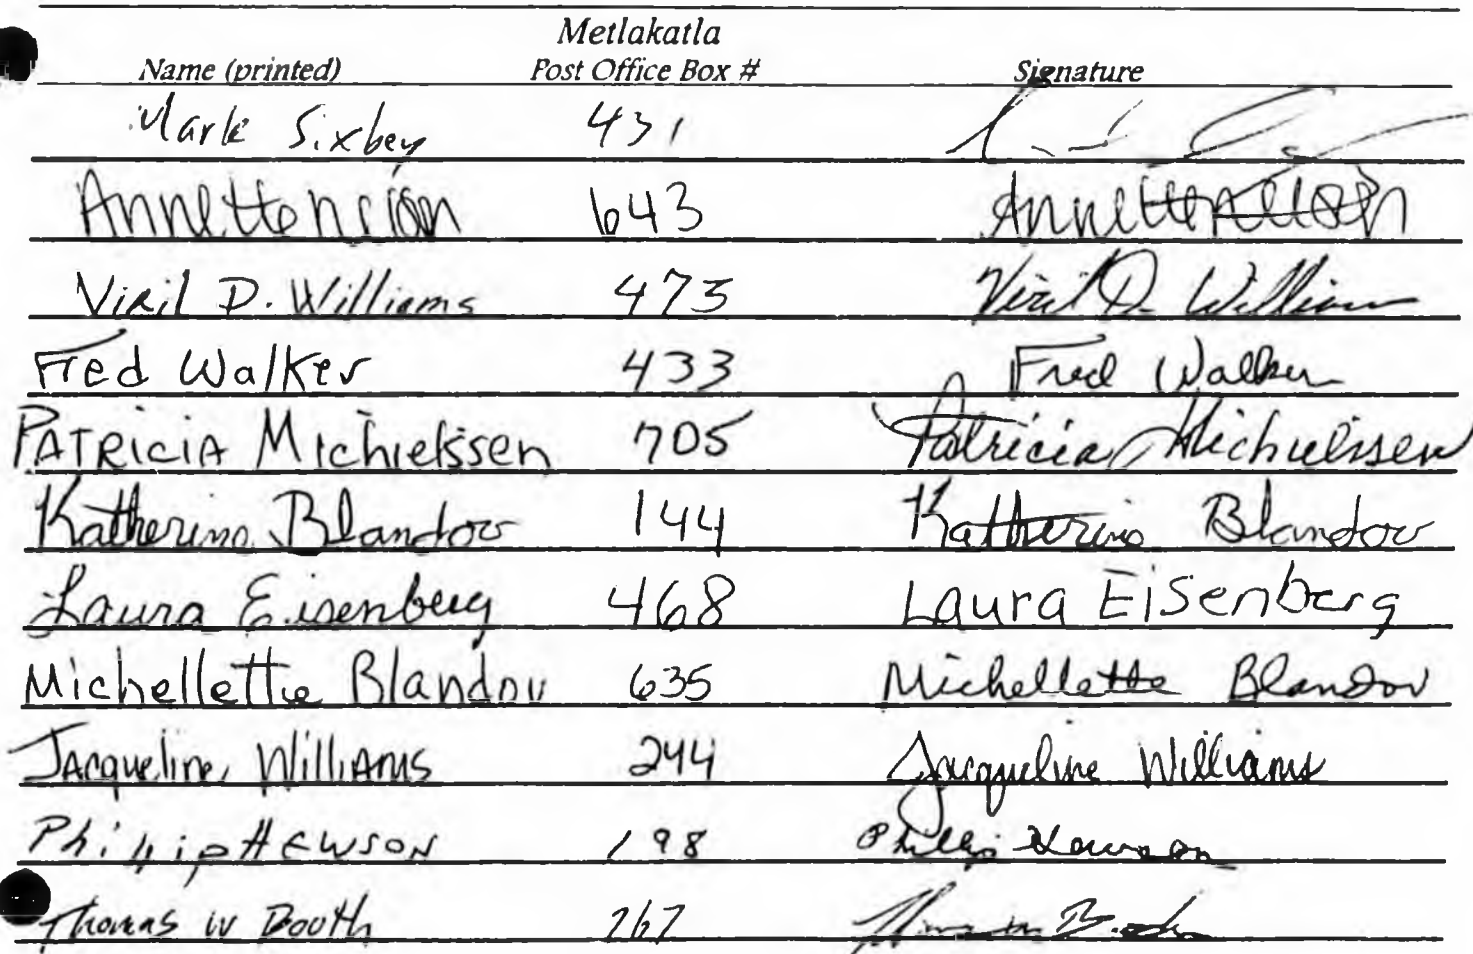 Metlakatla
Name (printed) Post Office Box # Signature
Mark Sixbey 431
Annette nelson 643 Annette nelson
Viril D. Williams 473 Viril D. Williams
Fred Walker 433 Fred Walker
PATRICIA Michielssen 705 Patricia Michielssen
Katherine Blandov 144 Katherine Blandov
Laura Eisenberg 468 Laura Eisenberg
Michellette Blandov 635 Michellette Blandov
Jacqueline Williams 244 Jacqueline Williams
Phillip Hewson 198 Phillip Hewson
Thomas W Booth